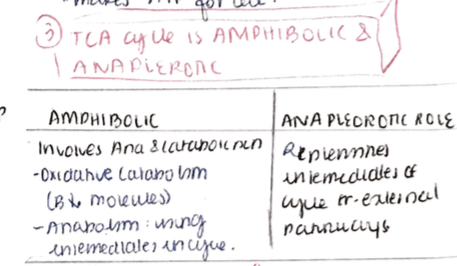 ③ TCA cycle is AMPHIBOLIC &
ANAPLEROTIC
AMPHIBOLIC
ANAPLEOROTIC ROLE
Involves Ana & catabolic rxn
-Oxidative Catabolism
molecules)
-Anabolism: using
intermediates in cycle.
Replenishes
intermediates of
cycle external
pathways